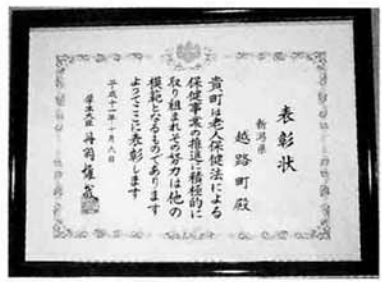 表彰状
新潟県
越路町殿
貴町は老人保健法による
保健事業の推進に積極的に
取り組まれその努力は他の
模範となるものであります
よってここに表彰します
平成十二年十月八日
厚生大臣